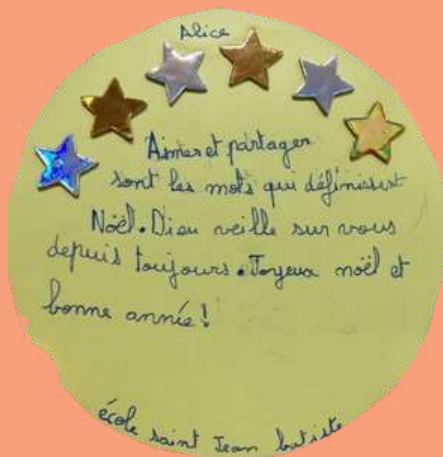 Alice
Aimer et partager
sont les mots qui définissent
Noël. Dieu veille sur vous
depuis toujours. Joyeux noël et
bonne année!
école saint Jean batiste